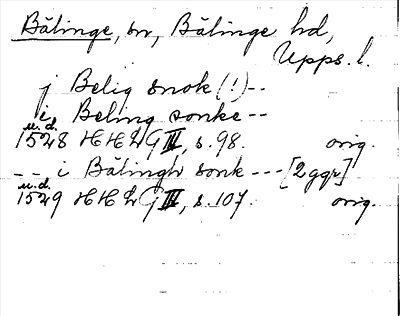 Bälinge, sn, Bälinge hd,
Upps. l.
j Belig snok (!) --
i Beling sonke --
u.d.
1528 HHLG III, s. 98. orig.
-- i Bälingh sonk --- [2 ggr]
u.d.
1529 HHLG III, s. 107. orig.